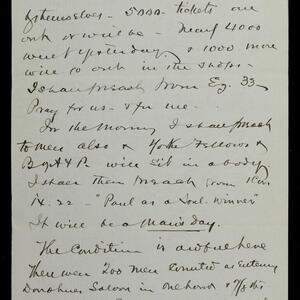 of themselves - 5000 tickets are
out or will be - Nearly 4000
went yesterday & 1000 more
will be out in the shops -
I shall preach from Ez. 33
Pray for us - & for me -
For the Morning I shall preach
to men also & Yoke Fellows &
B of A & P. will sit in a body.
I shall then preach from 1 Cor.
IX. 22 - "Paul as a Soul-winner"
It will be a Man's Day.
The Condition is awful here
There were 200 men counted as entering
Donohue Saloon in one hour & 718 this